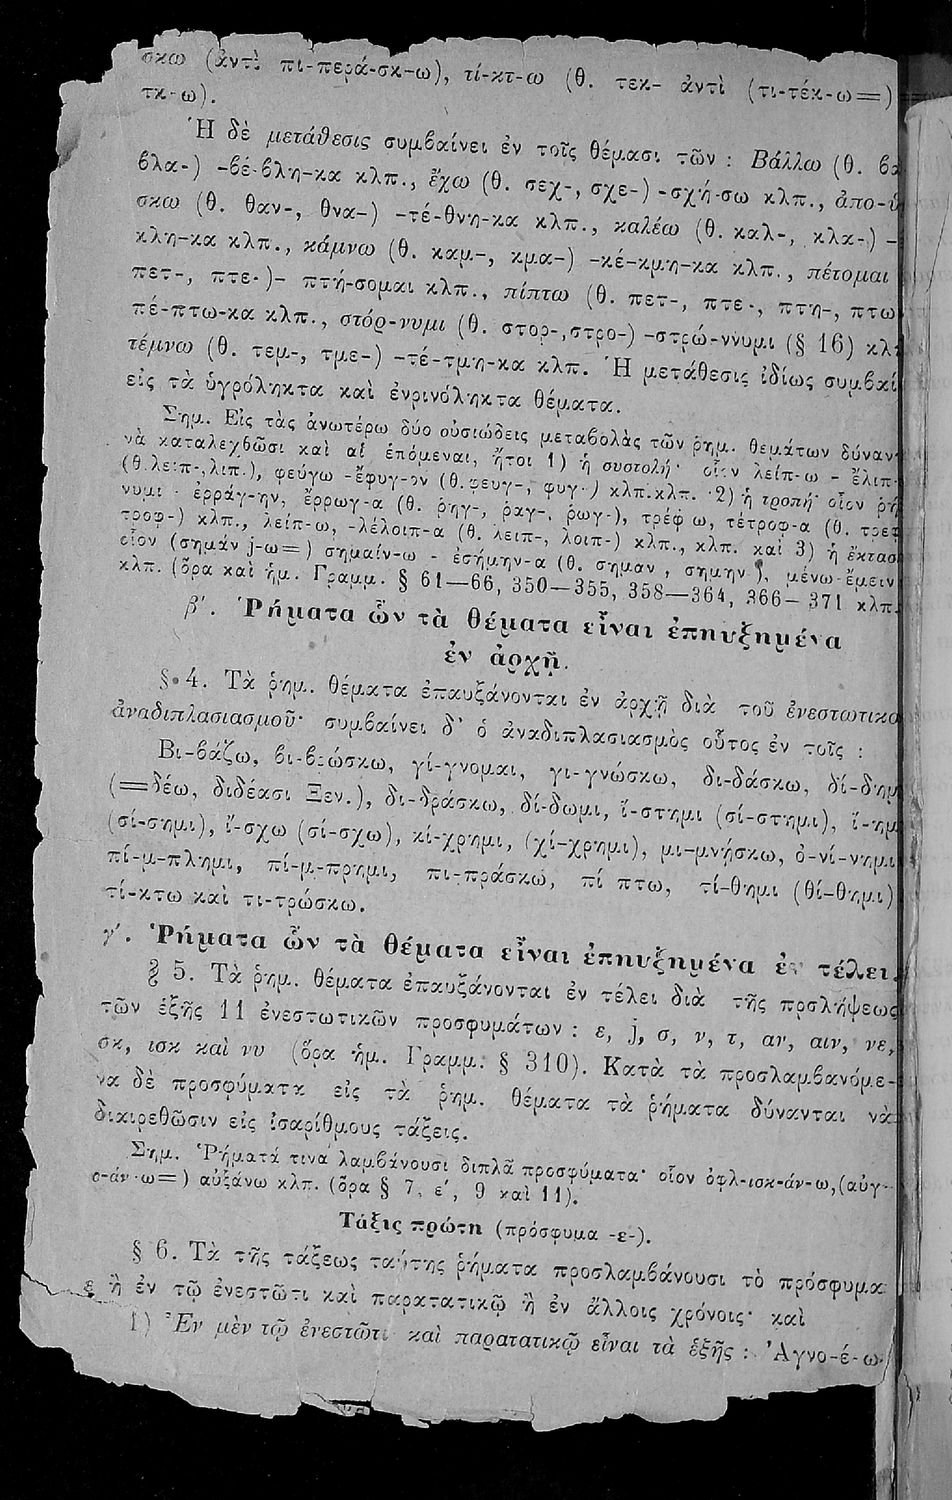 σκω (ἀντὶ πι-περά-σκ-ω), τί-κτ-ω (θ. τεκ- ἀντὶ (τι-τέκ-ω=)
τκ-ω).
Ἡ δὲ μετάθεσις συμβαίνει ἐν τοῖς θέμασι τῶν : Βάλλω (θ. βα
βλα-) -βέ-βλη-κα κλπ., ἔχω (θ. σεχ-, σχε-) -σχή-σω κλπ., ἀπο-θ
σκω (θ. θαν-, θνα-) -τέ-θνη-κα κλπ., καλέω (θ. καλ-, κλα-) -
κλη-κα κλπ., κάμνω (θ. καμ-, κμα-) -κέ-κμη-κα κλπ., πέτομαι
πετ-, πτε-)- πτή-σομαι κλπ., πίπτω (θ. πετ-, πτε-, πτη-, πτω
πέ-πτω-κα κλπ., στόρ-νυμι (θ. στορ-,στρο-) -στρώ-ννυμι (§ 16) κλπ
τέμνω (θ. τεμ-, τμε-) -τέ-τμη-κα κλπ. Ἡ μετάθεσις ἰδίως συμβαί
εἰς τὰ ὑγρόληκτα καὶ ἐνρινόληκτα θέματα.
Σημ. Εἰς τὰς ἀνωτέρω δύο οὐσιώδεις μεταβολὰς τῶν ῥημ. θεμάτων δύναν
νὰ καταλεχθῶσι καὶ αἱ ἑπόμεναι, ἤτοι 1) ἡ συστολή· οἷον λείπ-ω - ἔλιπ-
(θ.λειπ-,λιπ.), φεύγω -ἔφυγ-ον (θ.φευγ-, φυγ-) κλπ.κλπ. 2) ἡ τροπή· οἷον ῥή
νυμι - ἐρράγ-ην, ἔρρωγ-α (θ. ῥηγ-, ῥαγ-, ῥωγ-), τρέφ ω, τέτροφ-α (θ. τρεφ
τροφ-) κλπ., λείπ-ω, -λέλοιπ-α (θ. λειπ-, λοιπ-) κλπ., κλπ. καὶ 3) ἡ ἔκτασ
οἷον (σημάν j-ω=) σημαίν-ω - ἐσήμην-α (θ. σημαν , σημην ), μένω-ἔμειν
κλπ. (ὅρα καὶ ἡμ. Γραμμ. § 61—66, 350—355, 358—364, 366—371 κλπ.
β΄. Ῥήματα ὧν τὰ θέματα εἶναι ἐπηυξημένα
ἐν ἀρχῇ.
§ 4. Τὰ ῥημ. θέματα ἐπαυξάνονται ἐν ἀρχῇ διὰ τοῦ ἐνεστωτικο
ἀναδιπλασιασμοῦ· συμβαίνει δ' ὁ ἀναδιπλασιασμὸς οὗτος ἐν τοῖς :
Βι-βάζω, βι-βρώσκω, γί-γνομαι, γι-γνώσκω, δι-δάσκω, δί-δημ
(=δέω, διδέασι Ξεν.), δι-δράσκω, δί-δωμι, ἵ-στημι (σί-στημι), ἵ-ημ
(σί-σημι), ἴ-σχω (σί-σχω), κί-χρημι, (χί-χρημι), μι-μνήσκω, ὀ-νί-νημι
πί-μ-πλημι, πί-μ-πρημι, πι-πράσκω, πί πτω, τί-θημι (θί-θημι)
τί-κτω καὶ τι-τρώσκω.
γ΄. Ῥήματα ὧν τὰ θέματα εἶναι ἐπηυξημένα ἐν τέλει.
§ 5. Τὰ ῥημ. θέματα ἐπαυξάνονται ἐν τέλει διὰ τῆς προλήψεως
τῶν ἑξῆς 11 ἐνεστωτικῶν προσφυμάτων : ε, j, σ, ν, τ, αν, αιν, νε,
σκ, ισκ καὶ νυ (ὅρα ἡμ. Γραμμ. § 310). Κατὰ τὰ προσλαμβανόμε-
να δὲ προσφύματα εἰς τὰ ῥημ. θέματα τὰ ῥήματα δύνανται νὰ
διαιρεθῶσιν εἰς ἰσαρίθμους τάξεις.
Σημ. Ῥήματά τινα λαμβάνουσι διπλᾶ προσφύματα· οἷον ὀφλ-ισκ-άν-ω,(αὐγ-
σ-άν-ω=) αὐξάνω κλπ. (ὅρα § 7, ε΄, 9 καὶ 11).
Τάξις πρώτη (πρόσφυμα -ε-).
§ 6. Τὰ τῆς τάξεως ταύτης ῥήματα προσλαμβάνουσι τὸ πρόσφυμα
ε ἢ ἐν τῷ ἐνεστῶτι καὶ παρατατικῷ ἢ ἐν ἄλλοις χρόνοις· καὶ
1) Ἐν μὲν τῷ ἐνεστῶτι καὶ παρατατικῷ εἶναι τὰ ἑξῆς : Ἀγνο-έ-ω